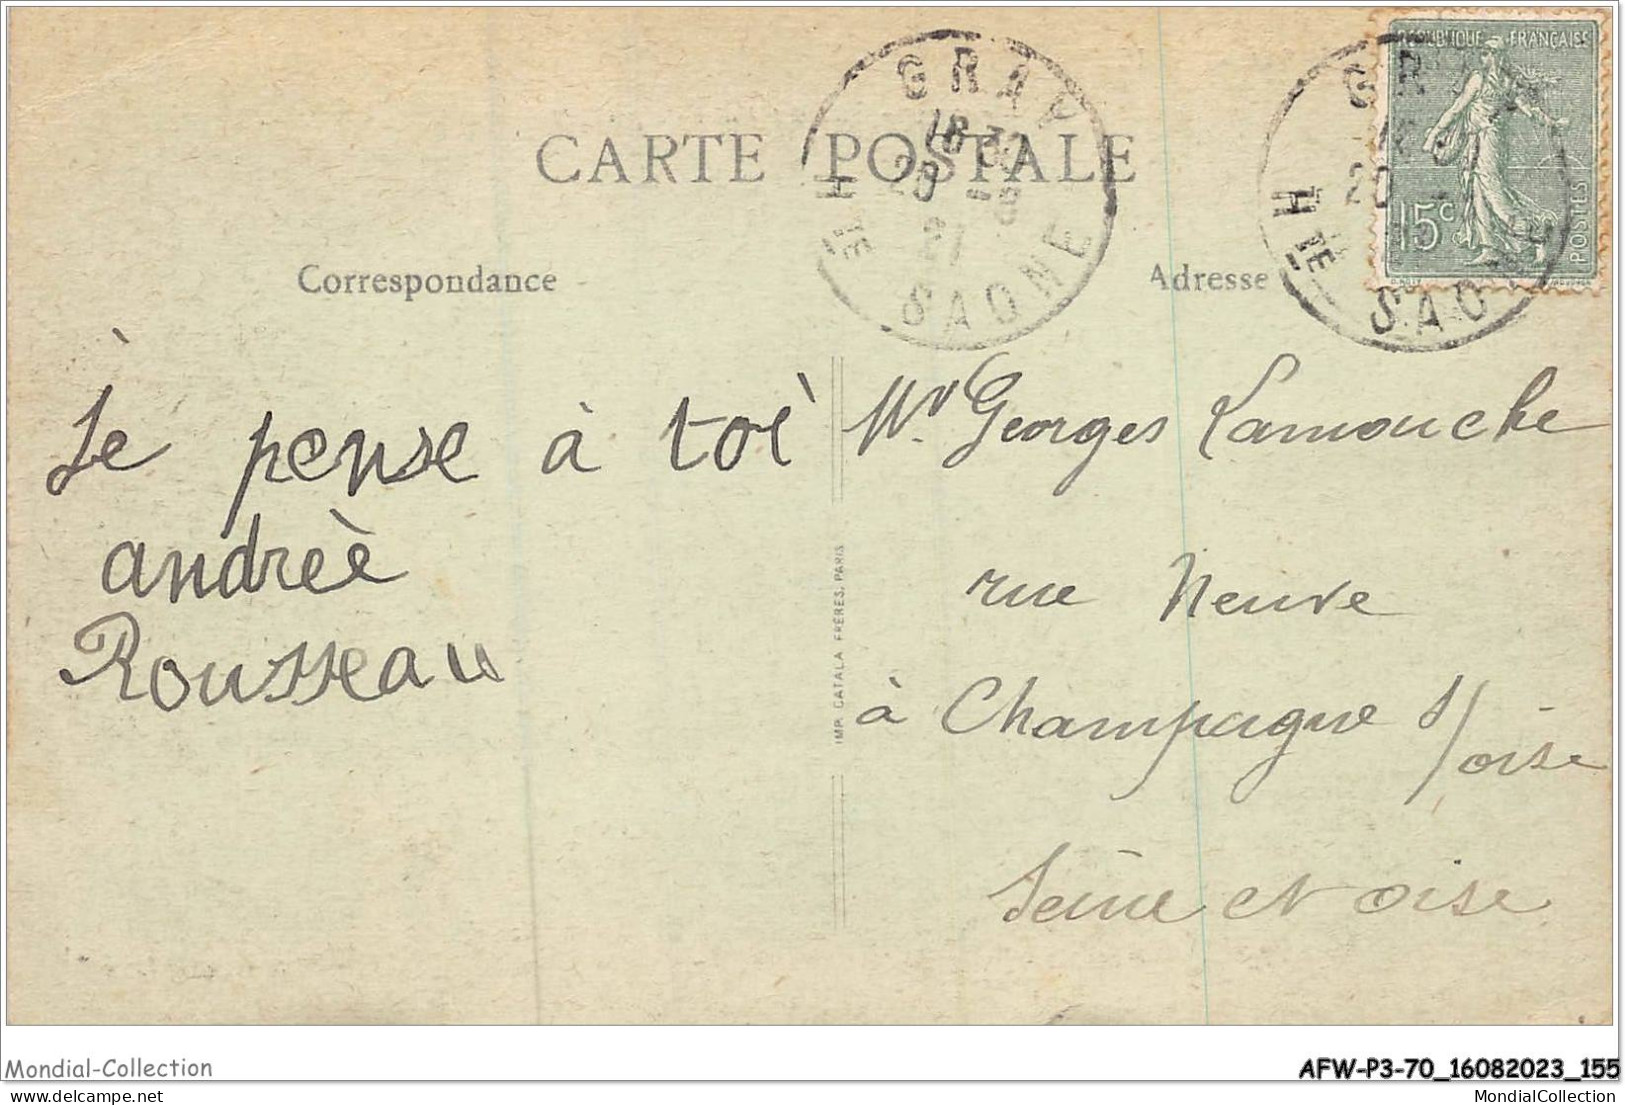 CARTE POSTALE
GRAY
18 30
20 -8
21
HTE SAONE
REPUBLIQUE FRANÇAISE
15c
POSTES
Correspondance
Adresse
Je pense à toi
andrèe
Rousseau
Mr. Georges Lamouche
rue Neuve
à Champagne s/oise
Seine et oise
IMP. CATALA FRÈRES, PARIS
Mondial-Collection
AFW-P3-70_16082023_155
delcampe.net
MondialCollection